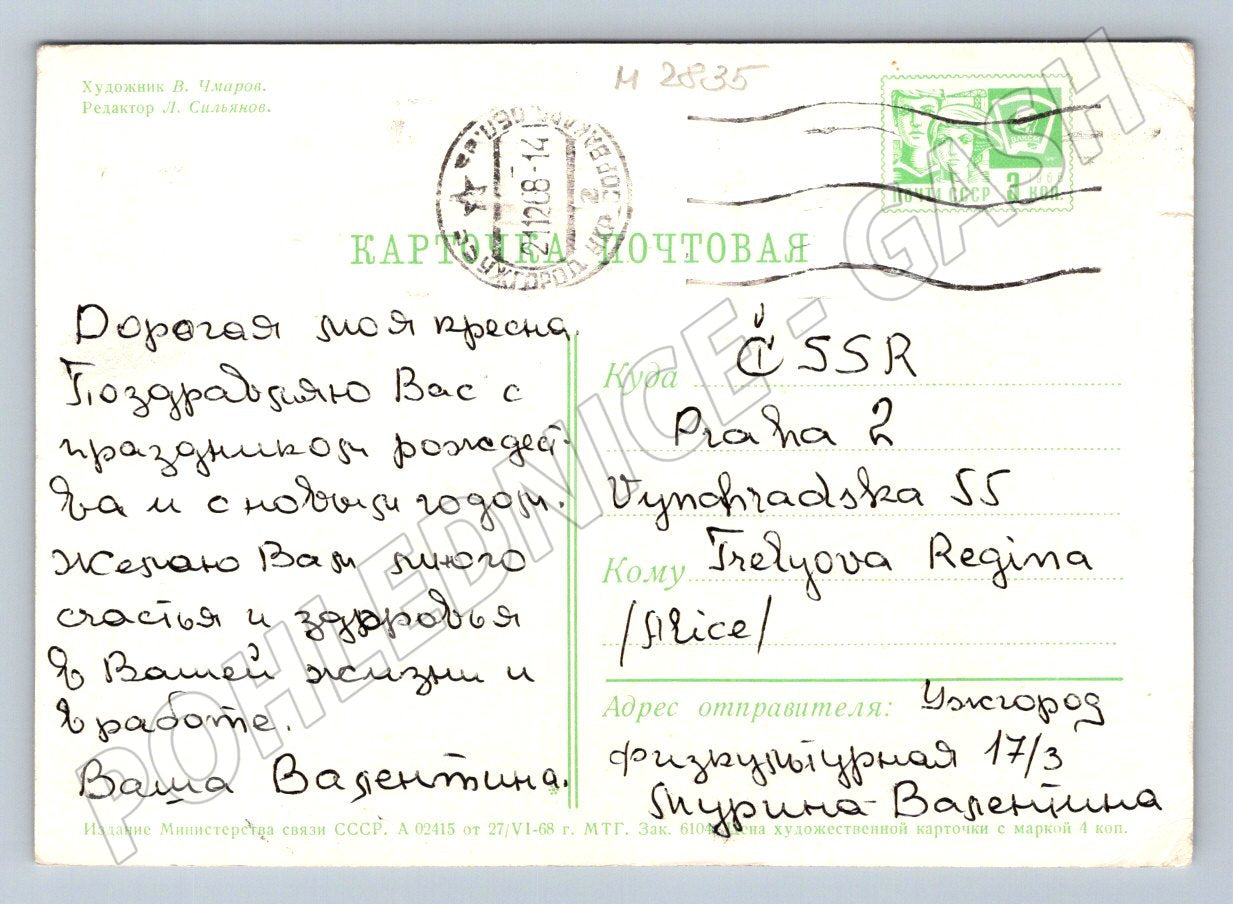 Художник В. Чмаров.
Редактор Л. Сильянов.
М 2835
УЖГОРОД УКР
211268-14
ПОЧТА СССР 3 КОП.
КАРТОЧКА ПОЧТОВАЯ
Дорогая моя кресна
Поздравляю Вас с
праздником рождест-
ва и с новым годом.
Желаю Вам много
счастья и здоровья
в Вашей жизни и
в работе.
Ваша Валентина.
Куда ČSSR
Praha 2
Vynohradska 55
Кому Trelyova Regina
/Alice/
Адрес отправителя: Ужгород
физкультурная 17/3
Мурина Валентина
Издание Министерства связи СССР. А 02415 от 27/VI-68 г. МТГ. Зак. 6104. Цена художественной карточки с маркой 4 коп.
POHLEDNICE - GASH